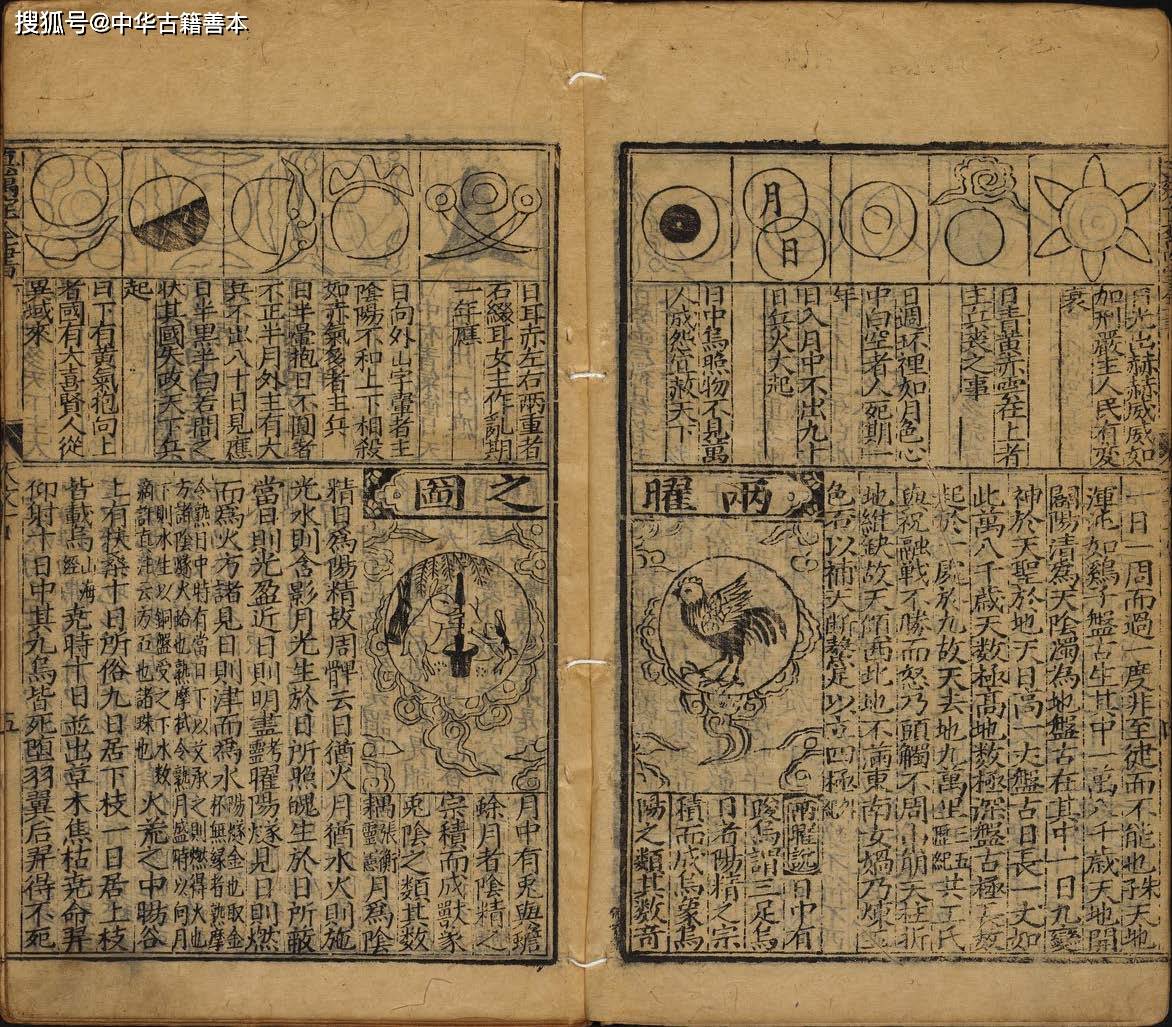 搜狐号@中华古籍善本
月
日
日光出赫赫威威如
加刑嚴主人民有变
衰
日青黃赤雲在上者
主立喪之事
日週环裡如月色心
中白空者人死期一
年
日入月中不出九十
日兵火大起
日中烏照物不見萬
人成怨宜救天下
一日一周而過一度非至健而不能也殊天地
渾沌如鷄子盤古生其中一萬八千歳天地開
闢陽清為天陰濁為地盤古在其中一日九變
神於天聖於地天日高一丈盤古日長一丈如
此萬八千歳天数極高地数極深盤古極長故
起於一處於九故天去地九萬里三五歷紀共工氏
與祝融戰不勝而怒乃頭觸不周山崩天柱折
地維缺故天傾西北地不滿東南女媧乃煉五
色石以補天断鰲足以立四極
兩曜
兩曜説日中有
踆烏謂三足烏
日者陽精之宗
積而成烏象烏
陽之類其数奇
日耳赤左右兩重者
石綴耳女主作亂期
一年應
日向外山字暈者主
陰陽不和上下相殺
如赤氣多者主兵
日半暈抱日不圓者
不正半月外主有大
兵不出八十日見應
日半黑半白若間之
狀其國失政天下兵
起
日下有黃氣抱向上
者國有大喜賢人從
異域來
之圖
月中有兎與蟾
蜍月者陰精之
宗積而成獸象
兎陰之類其数
耦張衡靈憲月為陰
精日為陽精故周髀云日猶火月猶水火則施
光水則含影月光生於日所照魄生於日所蔽
當日則光盈近日則明盡考靈曜陽燧見日則燃
而為火方諸見日則津而為水陽燧金也取金
杯無縁者熟摩
令熱日中時有當日下以艾承之則燃得火也
方諸陰燧大蛤也熟摩拭令熱月盛時以向月
下則水生以銅盤受之下水数
滴許真注云方五也諸珠也大荒之中暘谷
上有扶桑十日所俗九日居下枝一日居上枝
皆載烏山海經堯時十日並出草木焦枯堯命羿
仰射十日中其九烏皆死墮羽翼后羿得不死
五